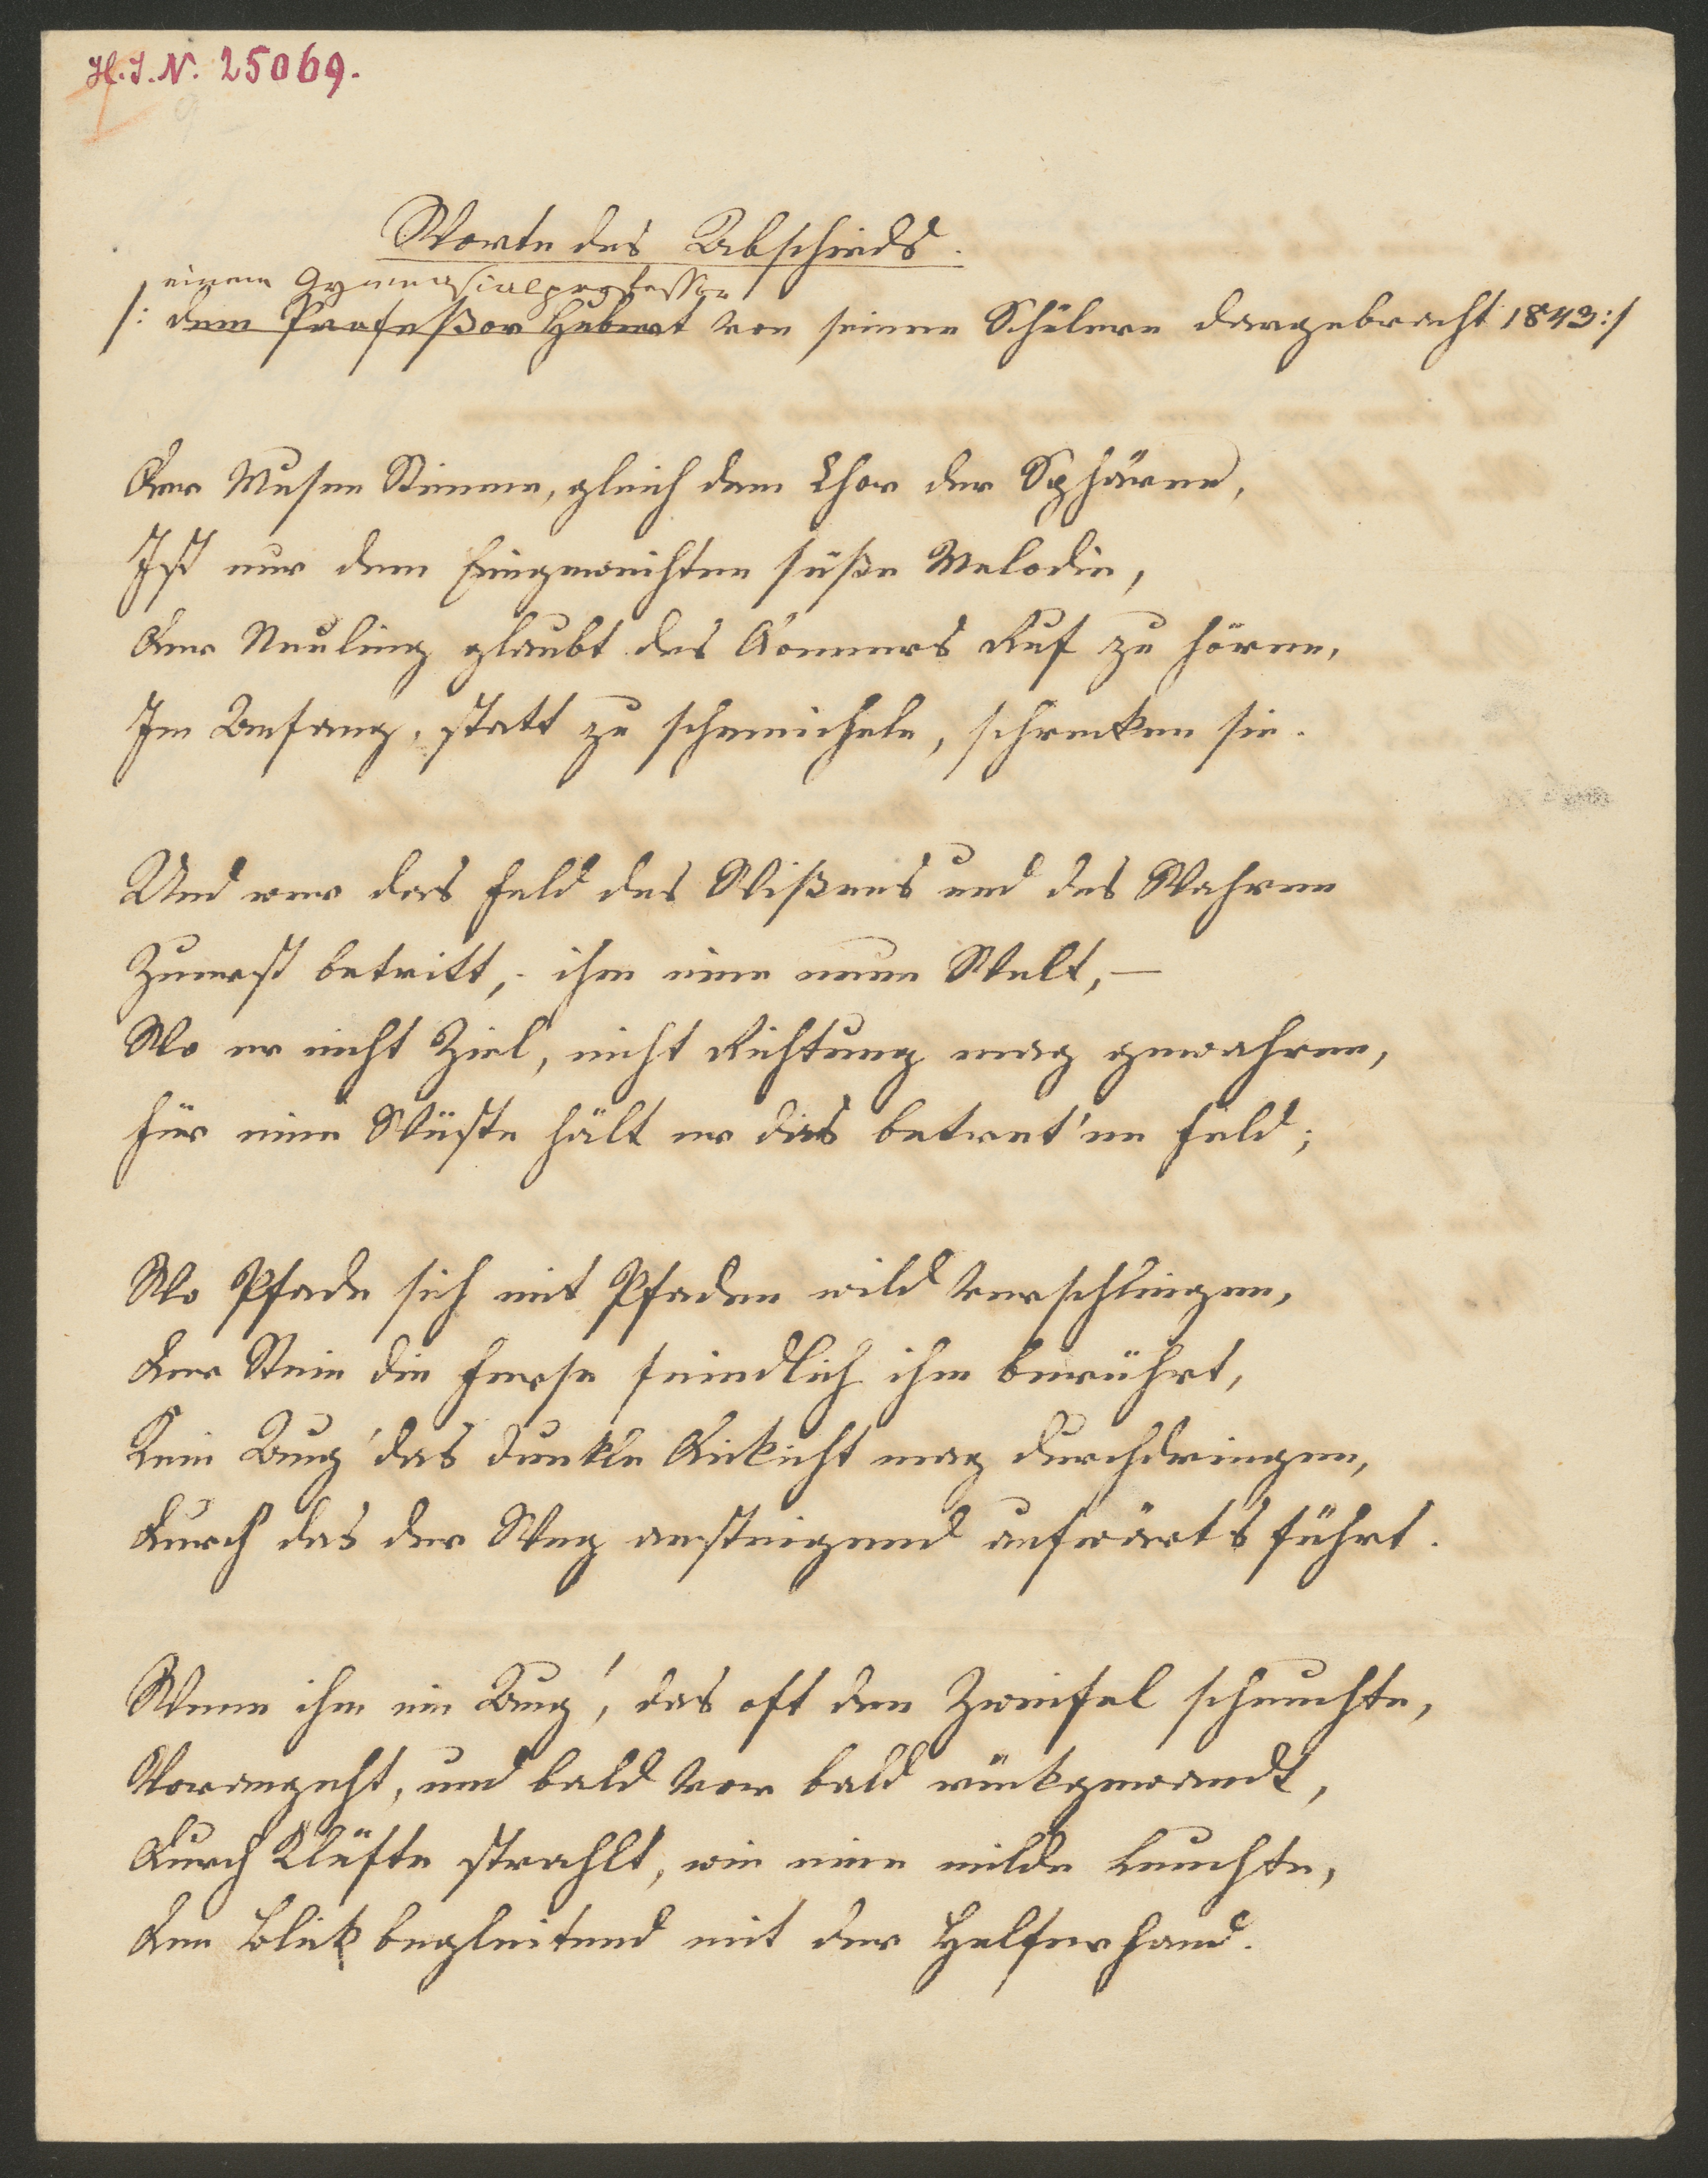 H.I.N. 25069.
Worte des Abschieds.
einem Gymnasialprofessor
/: dem Profeßor Hubert von seinen Schülern dargebracht 1843:/
Der Musen Stimme, gleich dem Chor der Sphären,
Ist nur dem Eingeweihten süße Melodie,
Der Neuling glaubt des Donners Ruf zu hören,
Im Anfang, statt zu schmeicheln, schrecken sie.
Und wer das Feld des Wißens und des Wahren
Zuerst betritt, - ihm eine neue Welt, —
Wo er nicht Ziel, nicht Richtung mag gewahren,
Für eine Wüste hält er das betret'ne Feld;
Wo Pfade sich mit Pfaden wild verschlingen,
Der Stein die Ferse feindlich ihm berührt,
Kein Aug' das dunkle Dickicht mag durchdringen,
Durch das der Weg ansteigend aufwärts führt.
Wenn ihm ein Aug', das oft den Zweifel scheuchte,
Vorangeht, und bald vor bald rückgewandt,
Durch Klüfte strahlt, wie eine milde Leuchte,
Den Blick begleitend mit der Helferhand.